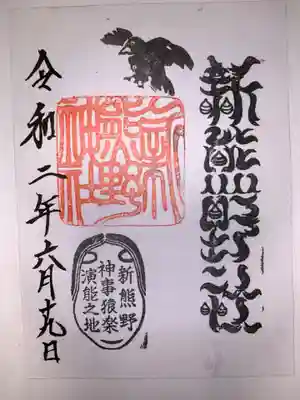 新熊野神社
新熊野
神事猿楽
演能之地
令和二年六月十九日